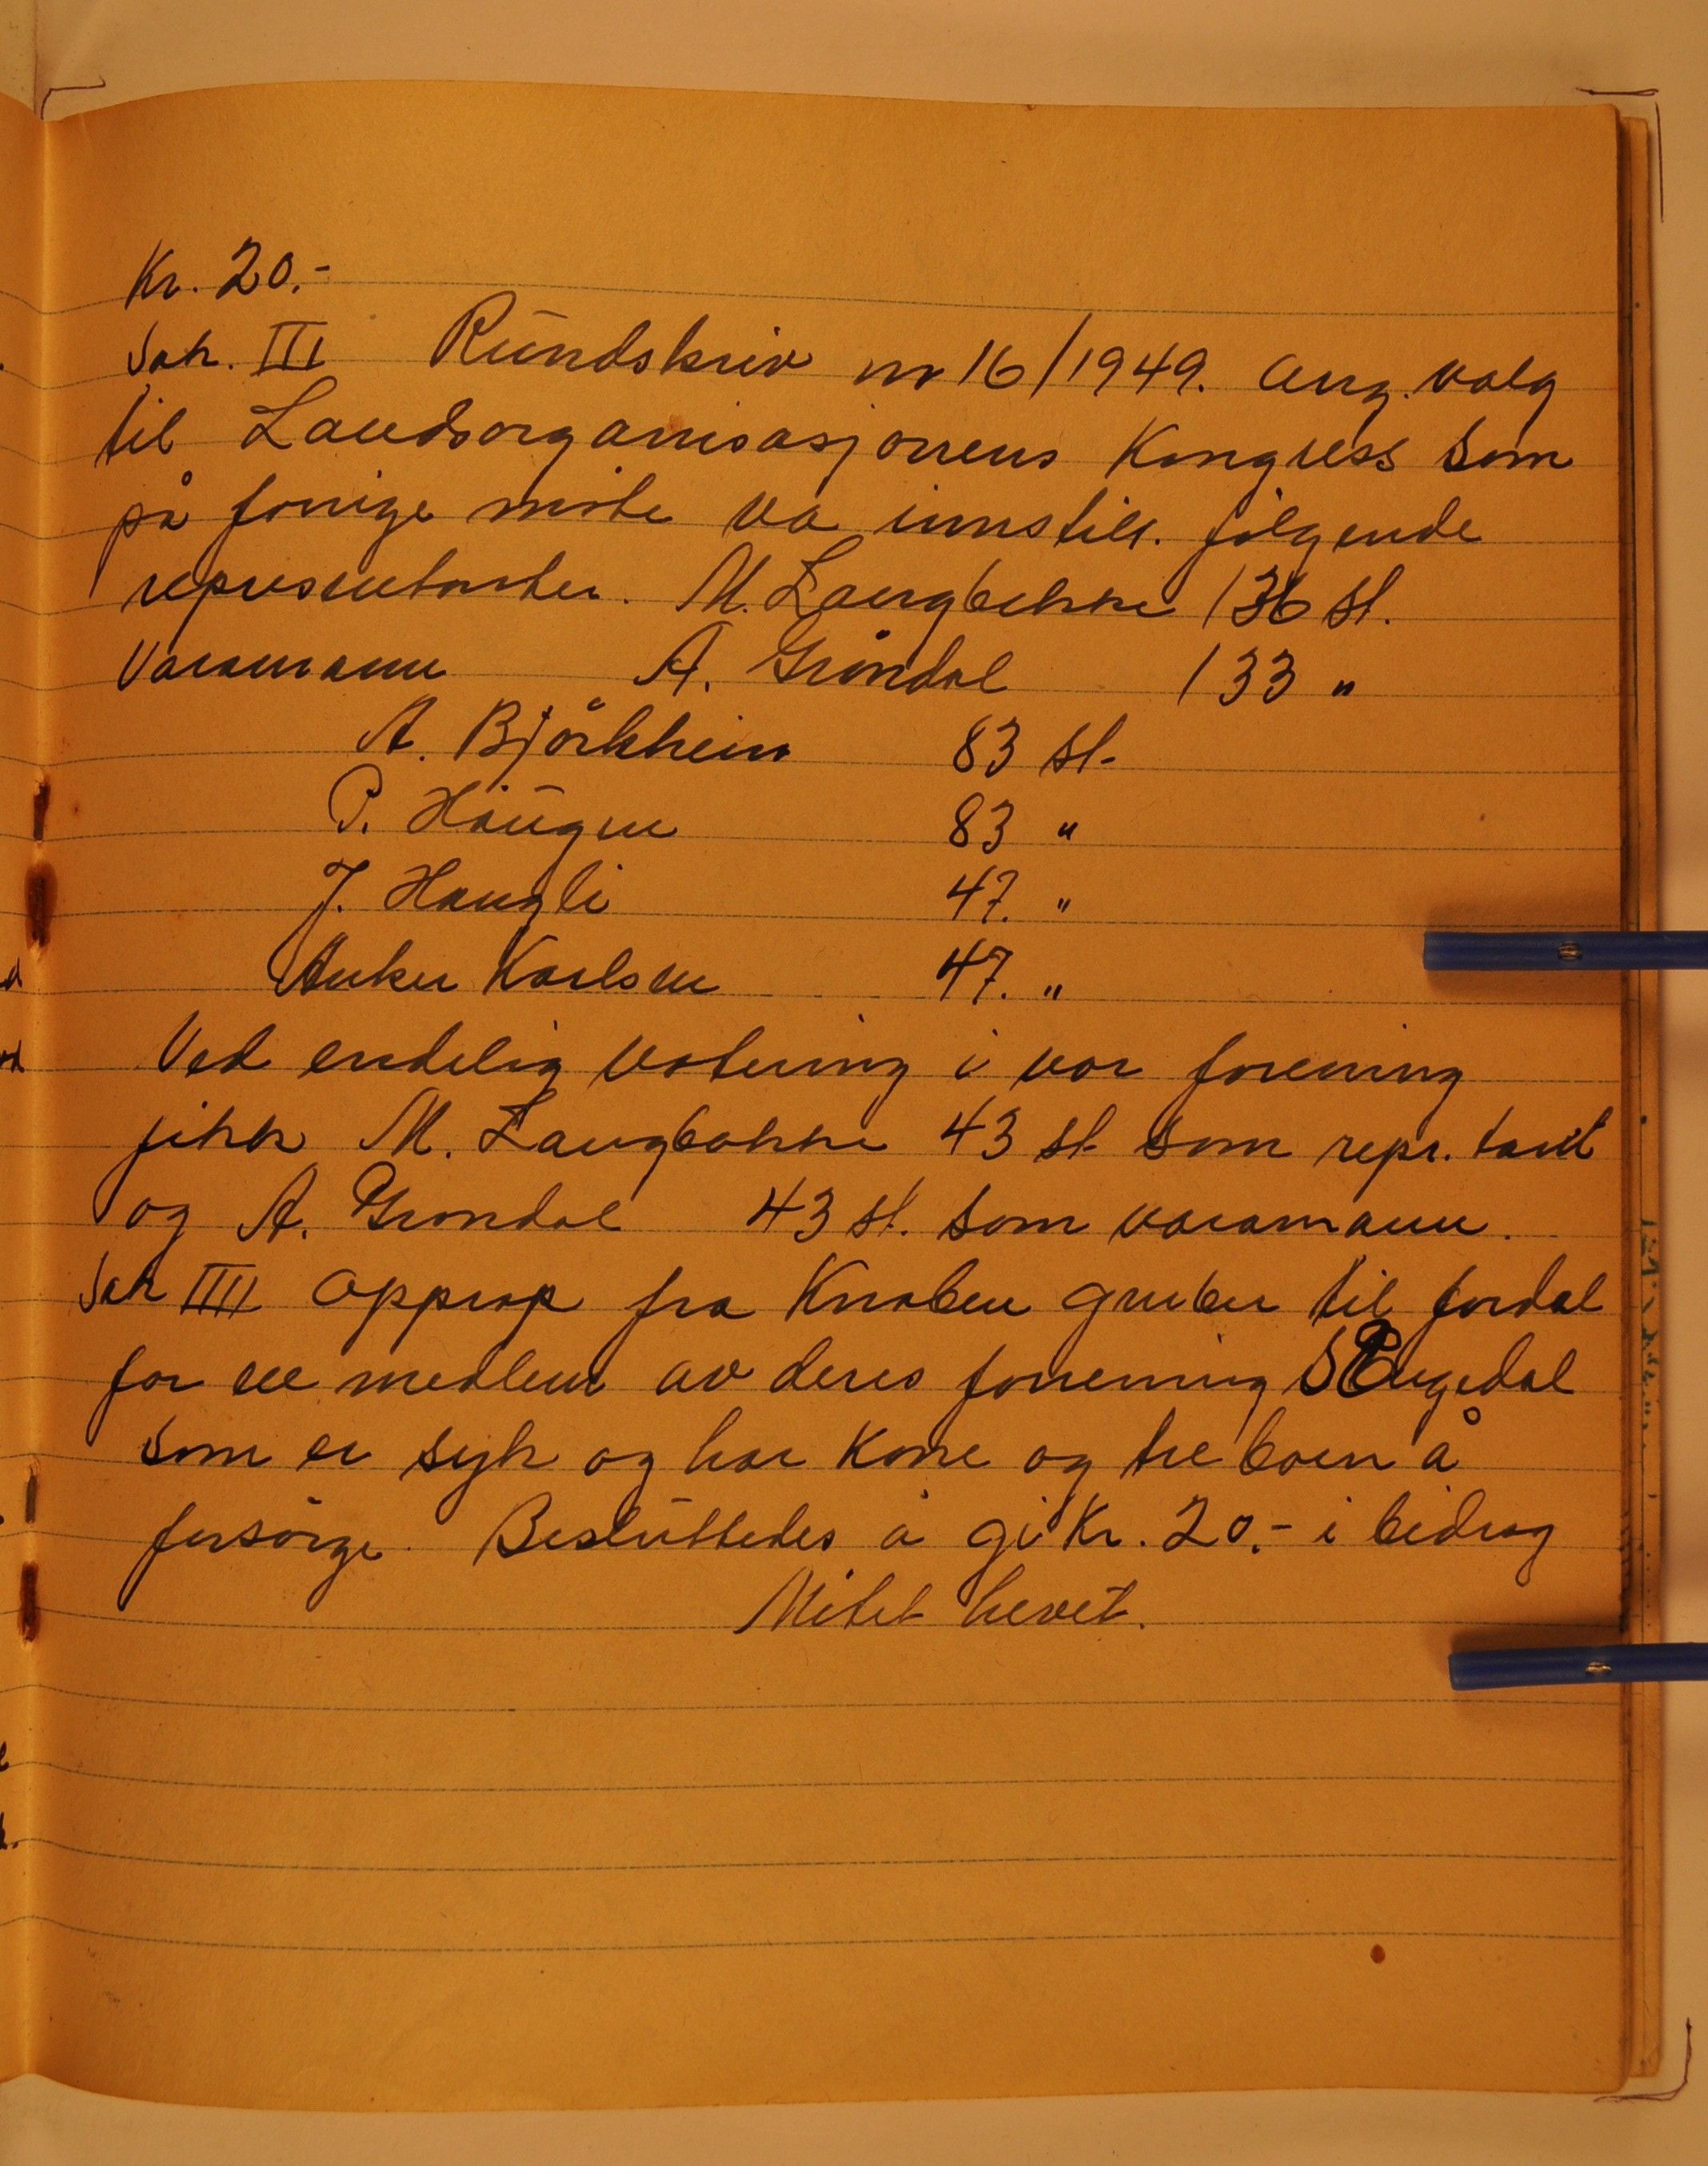 Kr. 20.-
Sak. III Rundskriv nr 16/1949. ang. valg
til Landsorganisasjonens Kongress som
på forrige møte va innstill. følgende
representanter. M. Langbakke 136 st.
Varamann A. Grøndal 133 "
A. Bjørkheim 83 st.
P. Haugen 83 "
J. Haugli 47. "
Anker Karlsen 47. "
Ved endelig votering i vor forening
fikk M. Langbakke 43 st som repr. tant
og A. Grøndal 43 st. som varamann.
Sak IIII Opprop fra Knaben gruber til fordel
for ee medlem av deres forrening
som er syk og har kone og tre barn å
forsørge. Besluttedes å gi Kr. 20.- i bidrag
Mötet hevet.